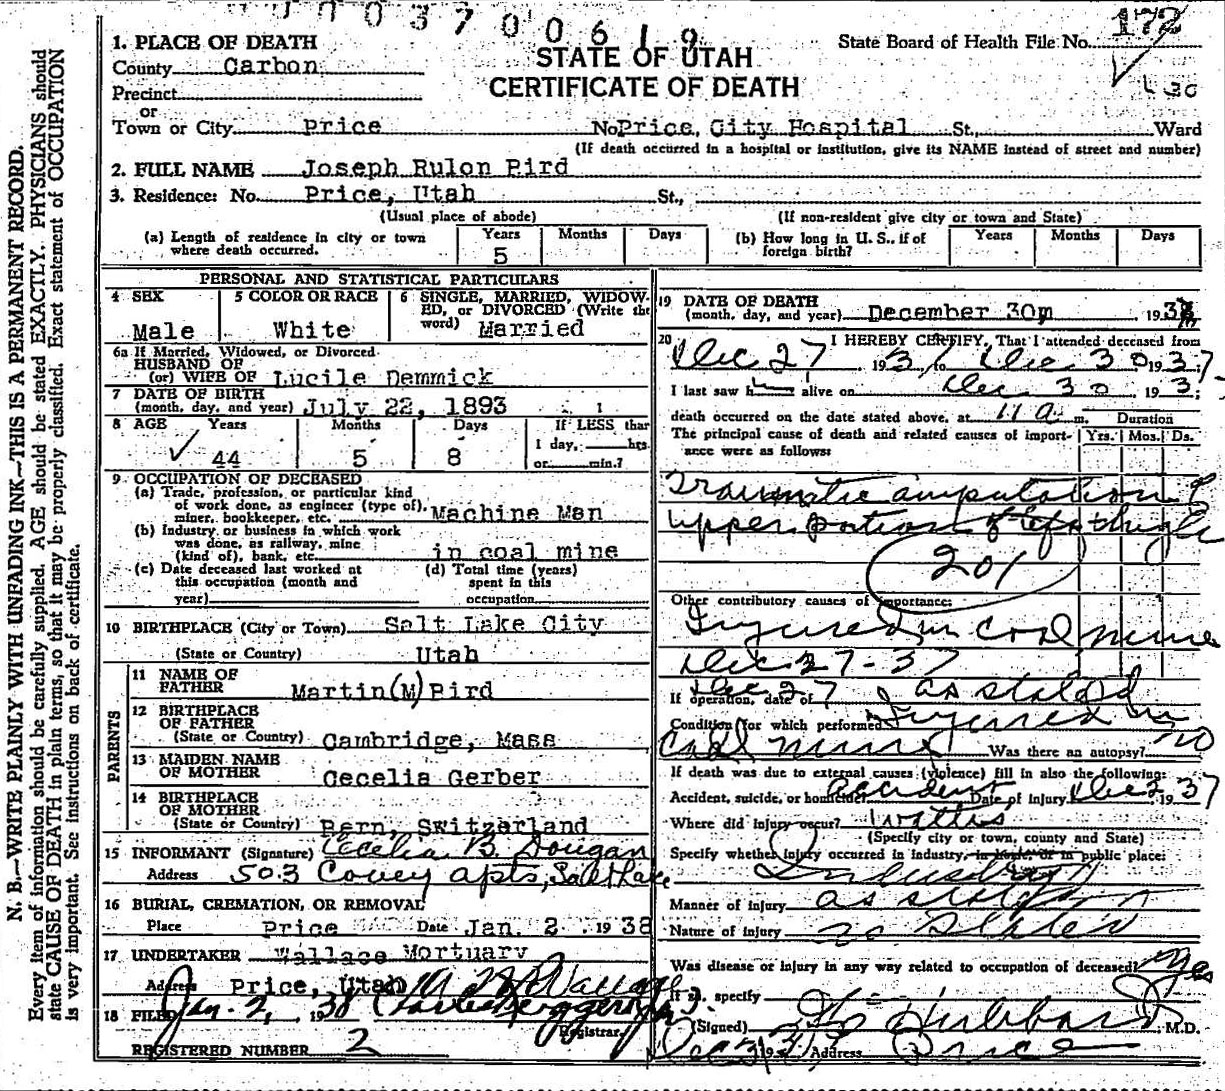 003700619
172
1. PLACE OF DEATH
STATE OF UTAH
CERTIFICATE OF DEATH
State Board of Health File No.
County Carbon
Precinct
or
Town or City Price No Price, City Hospital St., Ward
(If death occurred in a hospital or institution, give its NAME instead of street and number)
2. FULL NAME Joseph Rulon Bird
3. Residence: No. Price, Utah St.,
(Usual place of abode) (If non-resident give city or town and State)
(a) Length of residence in city or town where death occurred. Years 5 Months Days
(b) How long in U. S., if of foreign birth? Years Months Days
PERSONAL AND STATISTICAL PARTICULARS
4 SEX Male
5 COLOR OR RACE White
6 SINGLE, MARRIED, WIDOWED, OR DIVORCED (Write the word) Married
6a If Married, Widowed, or Divorced
HUSBAND OF
(or) WIFE OF Lucile Demmick
7 DATE OF BIRTH
(month, day, and year) July 22, 1893
8 AGE Years 44 Months 5 Days 8 If LESS than 1 day, hrs. or min.?
9 OCCUPATION OF DECEASED
(a) Trade, profession, or particular kind of work done, as engineer (type of), miner, bookkeeper, etc. Machine Man
(b) Industry or business in which work was done, as railway, mine (kind of), bank, etc. in coal mine
(c) Date deceased last worked at this occupation (month and year)
(d) Total time (years) spent in this occupation
10 BIRTHPLACE (City or Town) Salt Lake City
(State or Country) Utah
PARENTS
11 NAME OF FATHER Martin (M) Bird
12 BIRTHPLACE OF FATHER
(State or Country) Cambridge, Mass
13 MAIDEN NAME OF MOTHER Cecelia Gerber
14 BIRTHPLACE OF MOTHER
(State or Country) Bern, Switzerland
15 INFORMANT (Signature) Cecelia B. Dougan
Address 503 Covey apts, Salt Lake
16 BURIAL, CREMATION, OR REMOVAL
Place Price Date Jan. 2 1938
17 UNDERTAKER Wallace Mortuary
Address Price, Utah
18 FILED Jan. 2, 1938
Registrar.
REGISTERED NUMBER 2
19 DATE OF DEATH
(month, day, and year) December 30 193
20 I HEREBY CERTIFY, That I attended deceased from
Dec 27, 1937 to Dec 30 1937
I last saw h alive on Dec 30 193
death occurred on the date stated above, at 11 a m. Duration
The principal cause of death and related causes of importance were as follows: Yrs. Mos. Ds.
Traumatic amputation of
upper portion of left thigh
201
Other contributory causes of importance:
Injured in coal mine
Dec 27-37
If operation, date of Dec 27 as stated
Condition for which performed Injured in
Coal mine Was there an autopsy? no
If death was due to external causes (violence) fill in also the following:
Accident, suicide, or homicide? accident Date of injury Dec 27 1937
Where did injury occur? Wattis
(Specify city or town, county and State)
Specify whether injury occurred in industry, in home, or in public place:
Industry
Manner of injury as stated
Nature of injury as stated
Was disease or injury in any way related to occupation of deceased? Yes
If so, specify
(Signed) Hubbard M.D.
Dec 31 1937 Address Price
N. B.—WRITE PLAINLY WITH UNFADING INK—THIS IS A PERMANENT RECORD.
Every item of information should be carefully supplied. AGE should be stated EXACTLY. PHYSICIANS should
state CAUSE OF DEATH in plain terms, so that it may be properly classified. Exact statement of OCCUPATION
is very important. See instructions on back of certificate.